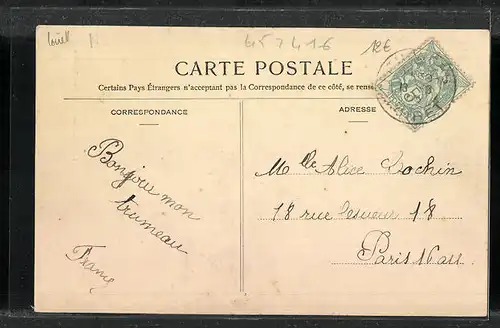 Loiret
457416
12€
CARTE POSTALE
Certains Pays Étrangers n'acceptant pas la Correspondance de ce côté, se rense
CORRESPONDANCE
ADRESSE
Bonjour mon
trumeau
Melle Alice Cochin
18 rue Lesueur 18
Paris